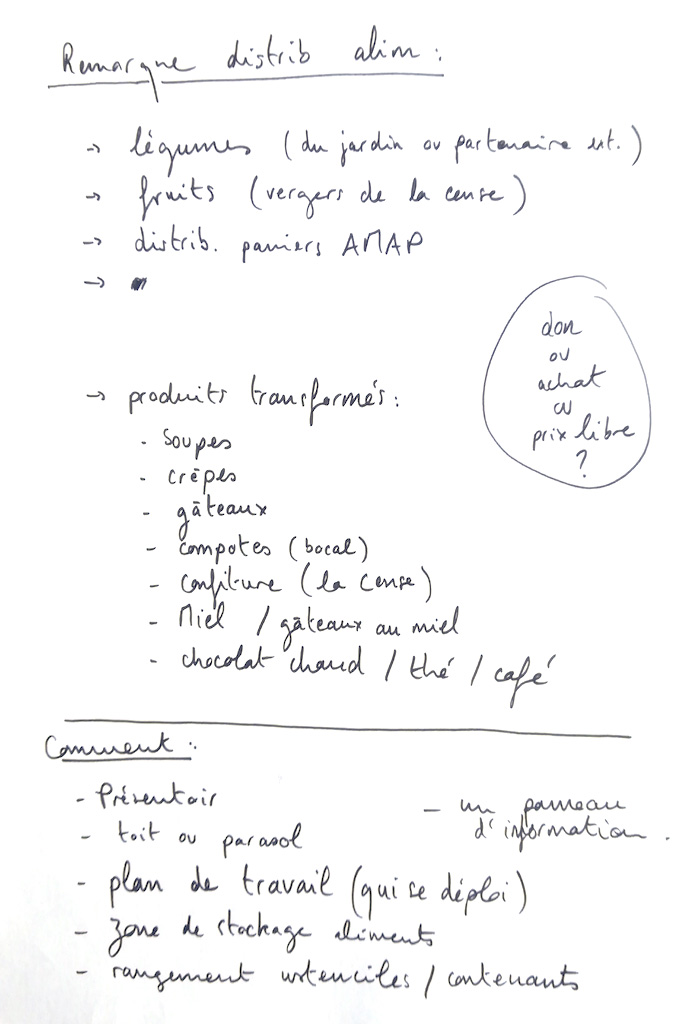 Remarque distrib alim :
→ légumes (du jardin ou partenaire ext.)
→ fruits (vergers de la cense)
→ distrib. paniers AMAP
→
don
ou
achat
ou
prix libre
?
→ produits transformés :
- Soupes
- crêpes
- gâteaux
- compotes (bocal)
- confiture (la cense)
- Miel / gâteaux au miel
- chocolat chaud / thé / café
Comment :
- Présentoir
- un panneau
d'information.
- toit ou parasol
- plan de travail (qui se déploi)
- zone de stockage aliments
- rangement ustenciles / contenants